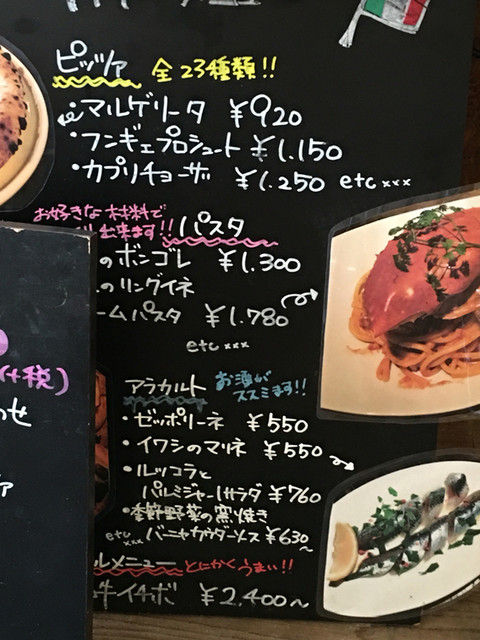 ピッツァ 全23種類!!
・マルゲリータ ¥920
・フンギェプロシュート ¥1.150
・カプリチョーザ ¥1.250 etc×××
お好きな材料で
出来ます!! パスタ
のボンゴレ ¥1.300
のリングイネ
ームパスタ ¥1.780
etc×××
(+税)
アラカルト お酒がススミます!!
・ゼッポリーネ ¥550
・イワシのマリネ ¥550
・ルッコラと
パルミジャーノサラダ ¥760
・季節野菜の窯焼き
etc××× バーニャカウダーソース ¥630~
ルメニュー とにかくうまい!!
牛イチボ ¥2,400~